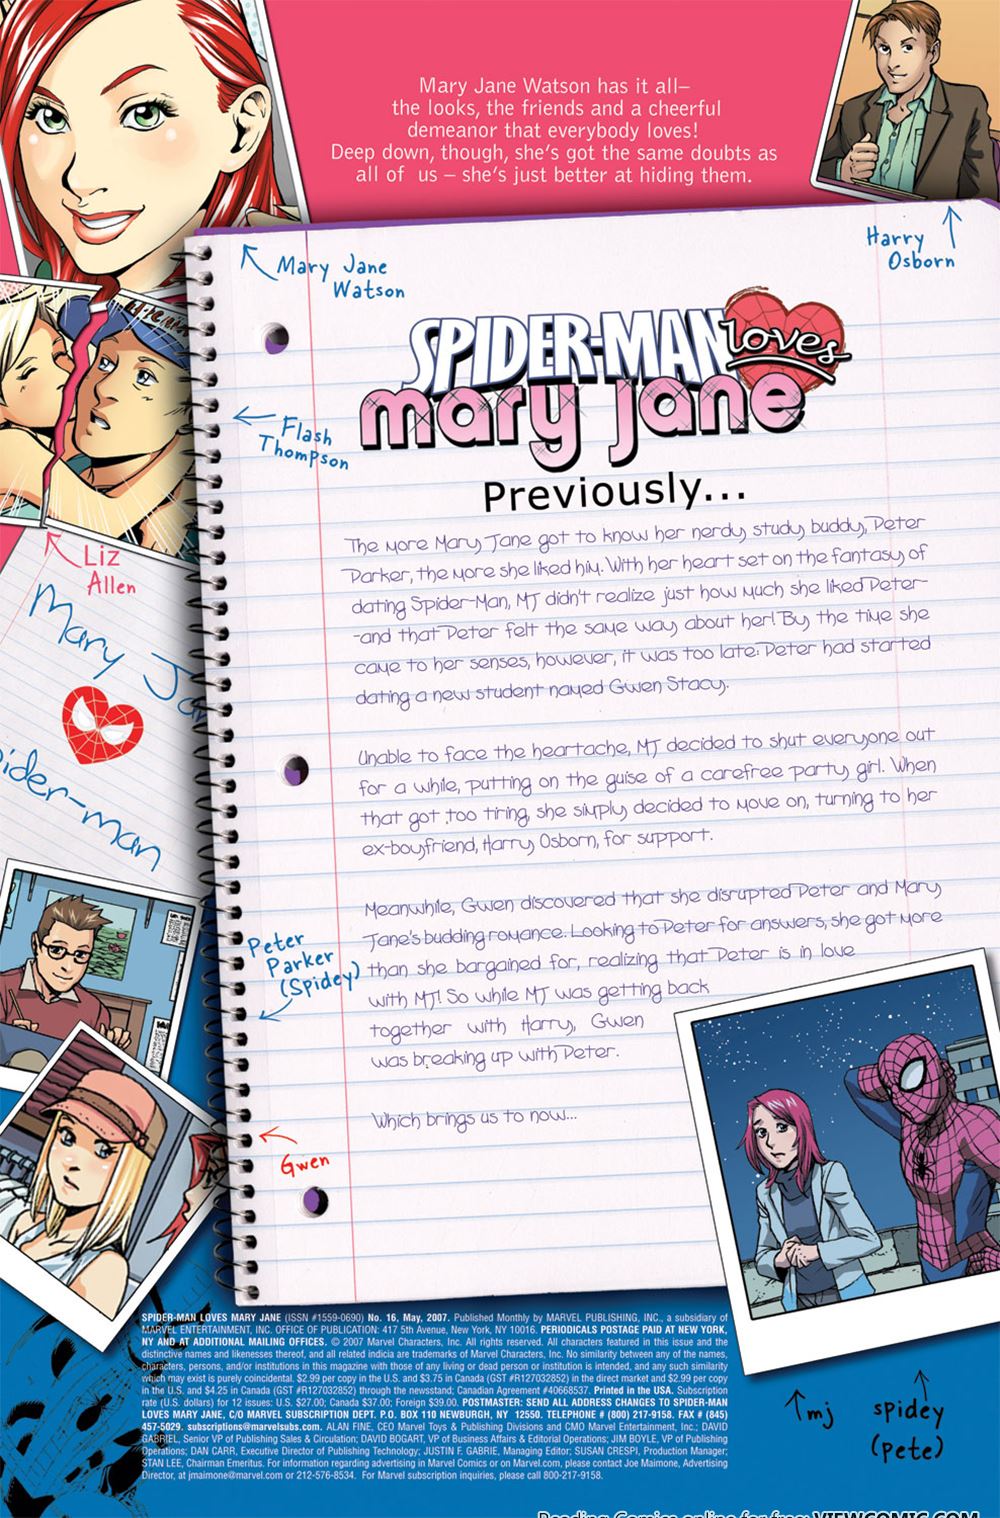 Mary Jane Watson has it all–
the looks, the friends and a cheerful
demeanor that everybody loves!
Deep down, though, she's got the same doubts as
all of us – she's just better at hiding them.
Mary Jane
Watson
Harry
Osborn
SPIDER-MAN loves
mary jane
Flash
Thompson
Previously...
The more Mary Jane got to know her nerdy study buddy, Peter
Parker, the more she liked him. With her heart set on the fantasy of
dating Spider-Man, MJ didn't realize just how much she liked Peter-
-and that Peter felt the same way about her! By the time she
came to her senses, however, it was too late: Peter had started
dating a new student named Gwen Stacy.
Liz
Allen
Mary Jan
ider-man
Unable to face the heartache, MJ decided to shut everyone out
for a while, putting on the guise of a carefree party girl. When
that got too tiring, she simply decided to move on, turning to her
ex-boyfriend, Harry Osborn, for support.
Meanwhile, Gwen discovered that she disrupted Peter and Mary
Jane's budding romance. Looking to Peter for answers, she got more
than she bargained for, realizing that Peter is in love
with MJ! So while MJ was getting back
together with Harry, Gwen
was breaking up with Peter.
Peter
Parker
(Spidey)
Which brings us to now...
Gwen
SPIDER-MAN LOVES MARY JANE (ISSN #1559-0690) No. 16, May, 2007. Published Monthly by MARVEL PUBLISHING, INC., a subsidiary of
MARVEL ENTERTAINMENT, INC. OFFICE OF PUBLICATION: 417 5th Avenue, New York, NY 10016. PERIODICALS POSTAGE PAID AT NEW YORK,
NY AND AT ADDITIONAL MAILING OFFICES. © 2007 Marvel Characters, Inc. All rights reserved. All characters featured in this issue and the
distinctive names and likenesses thereof, and all related indicia are trademarks of Marvel Characters, Inc. No similarity between any of the names,
characters, persons, and/or institutions in this magazine with those of any living or dead person or institution is intended, and any such similarity
which may exist is purely coincidental. $2.99 per copy in the U.S. and $3.75 in Canada (GST #R127032852) in the direct market and $2.99 per copy
in the U.S. and $4.25 in Canada (GST #R127032852) through the newsstand; Canadian Agreement #40668537. Printed in the USA. Subscription
rate (U.S. dollars) for 12 issues: U.S. $27.00; Canada $37.00; Foreign $39.00. POSTMASTER: SEND ALL ADDRESS CHANGES TO SPIDER-MAN
LOVES MARY JANE, C/O MARVEL SUBSCRIPTION DEPT. P.O. BOX 110 NEWBURGH, NY 12550. TELEPHONE # (800) 217-9158. FAX # (845)
457-5029. subscriptions@marvelsubs.com. ALAN FINE, CEO Marvel Toys & Publishing Divisions and CMO Marvel Entertainment, Inc.; DAVID
GABRIEL, Senior VP of Publishing Sales & Circulation; DAVID BOGART, VP of Business Affairs & Editorial Operations; JIM BOYLE, VP of Publishing
Operations; DAN CARR, Executive Director of Publishing Technology; JUSTIN F. GABRIE, Managing Editor; SUSAN CRESPI, Production Manager;
STAN LEE, Chairman Emeritus. For information regarding advertising in Marvel Comics or on Marvel.com, please contact Joe Maimone, Advertising
Director, at jmaimone@marvel.com or 212-576-8534. For Marvel subscription inquiries, please call 800-217-9158.
mj
spidey
(pete)
Reading Comics online for free: VIEWCOMIC.COM